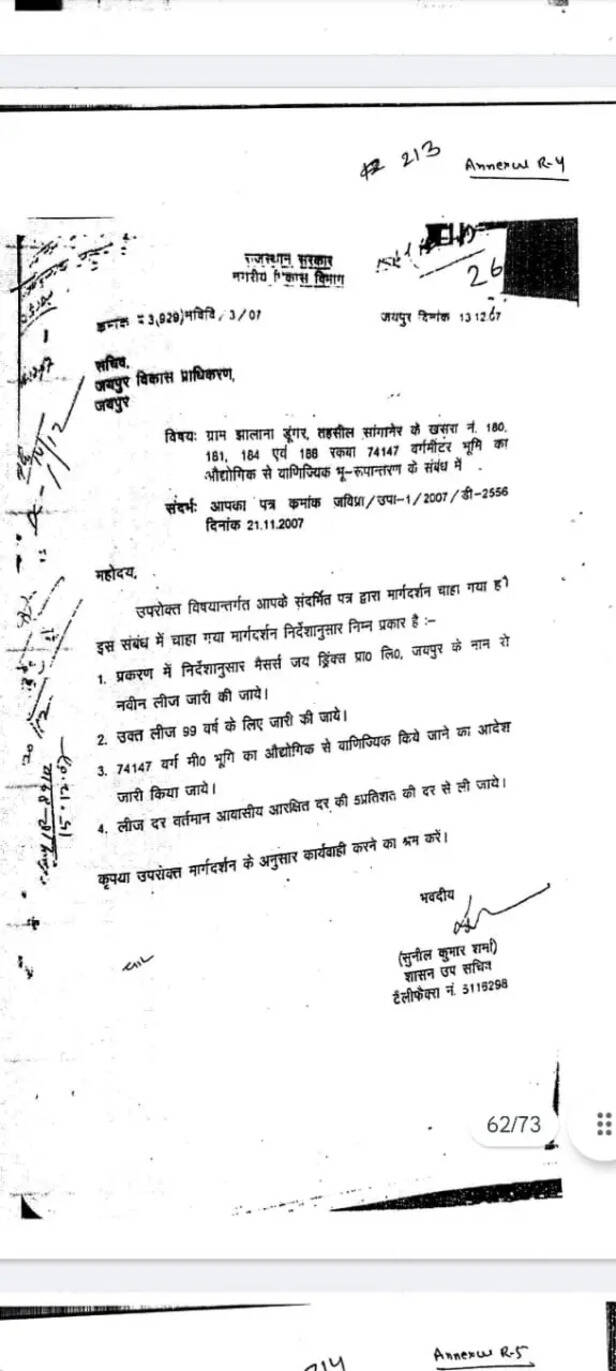 213 Annexure R-4
राजस्थान सरकार
नगरीय विकास विभाग
26
क्रमांक प 3(929)नविवि / 3 / 07 जयपुर दिनांक 13 12 07
सचिव,
जयपुर विकास प्राधिकरण,
जयपुर
विषयः ग्राम झालाना डूंगर, तहसील सांगानेर के खसरा नं. 180,
181, 184 एवं 188 रकबा 74147 वर्गमीटर भूमि का
औद्योगिक से वाणिज्यिक भू-रूपान्तरण के संबंध में
संदर्भः आपका पत्र कमांक जविप्रा/उपा-1/2007/डी-2556
दिनांक 21.11.2007
महोदय,
उपरोक्त विषयान्तर्गत आपके संदर्भित पत्र द्वारा मार्गदर्शन चाहा गया है
इस संबंध में चाहा गया मार्गदर्शन निर्देशानुसार निम्न प्रकार है :-
1. प्रकरण में निर्देशानुसार मैसर्स जय ड्रिंक्स प्रा0 लि0, जयपुर के नाम से
नवीन लीज जारी की जाये।
2. उक्त लीज 99 वर्ष के लिए जारी की जाये।
3. 74147 वर्ग मी0 भूमि का औद्योगिक से वाणिज्यिक किये जाने का आदेश
जारी किया जाये।
4. लीज दर वर्तमान आवासीय आरक्षित दर की 5प्रतिशत की दर से ली जाये।
कृपया उपरोक्त मार्गदर्शन के अनुसार कार्यवाही करने का श्रम करें।
भवदीय
(सुनील कुमार शर्मा)
शासन उप सचिव
टैलीफैक्स नं. 5116298
62/73
214 Annexure R-5